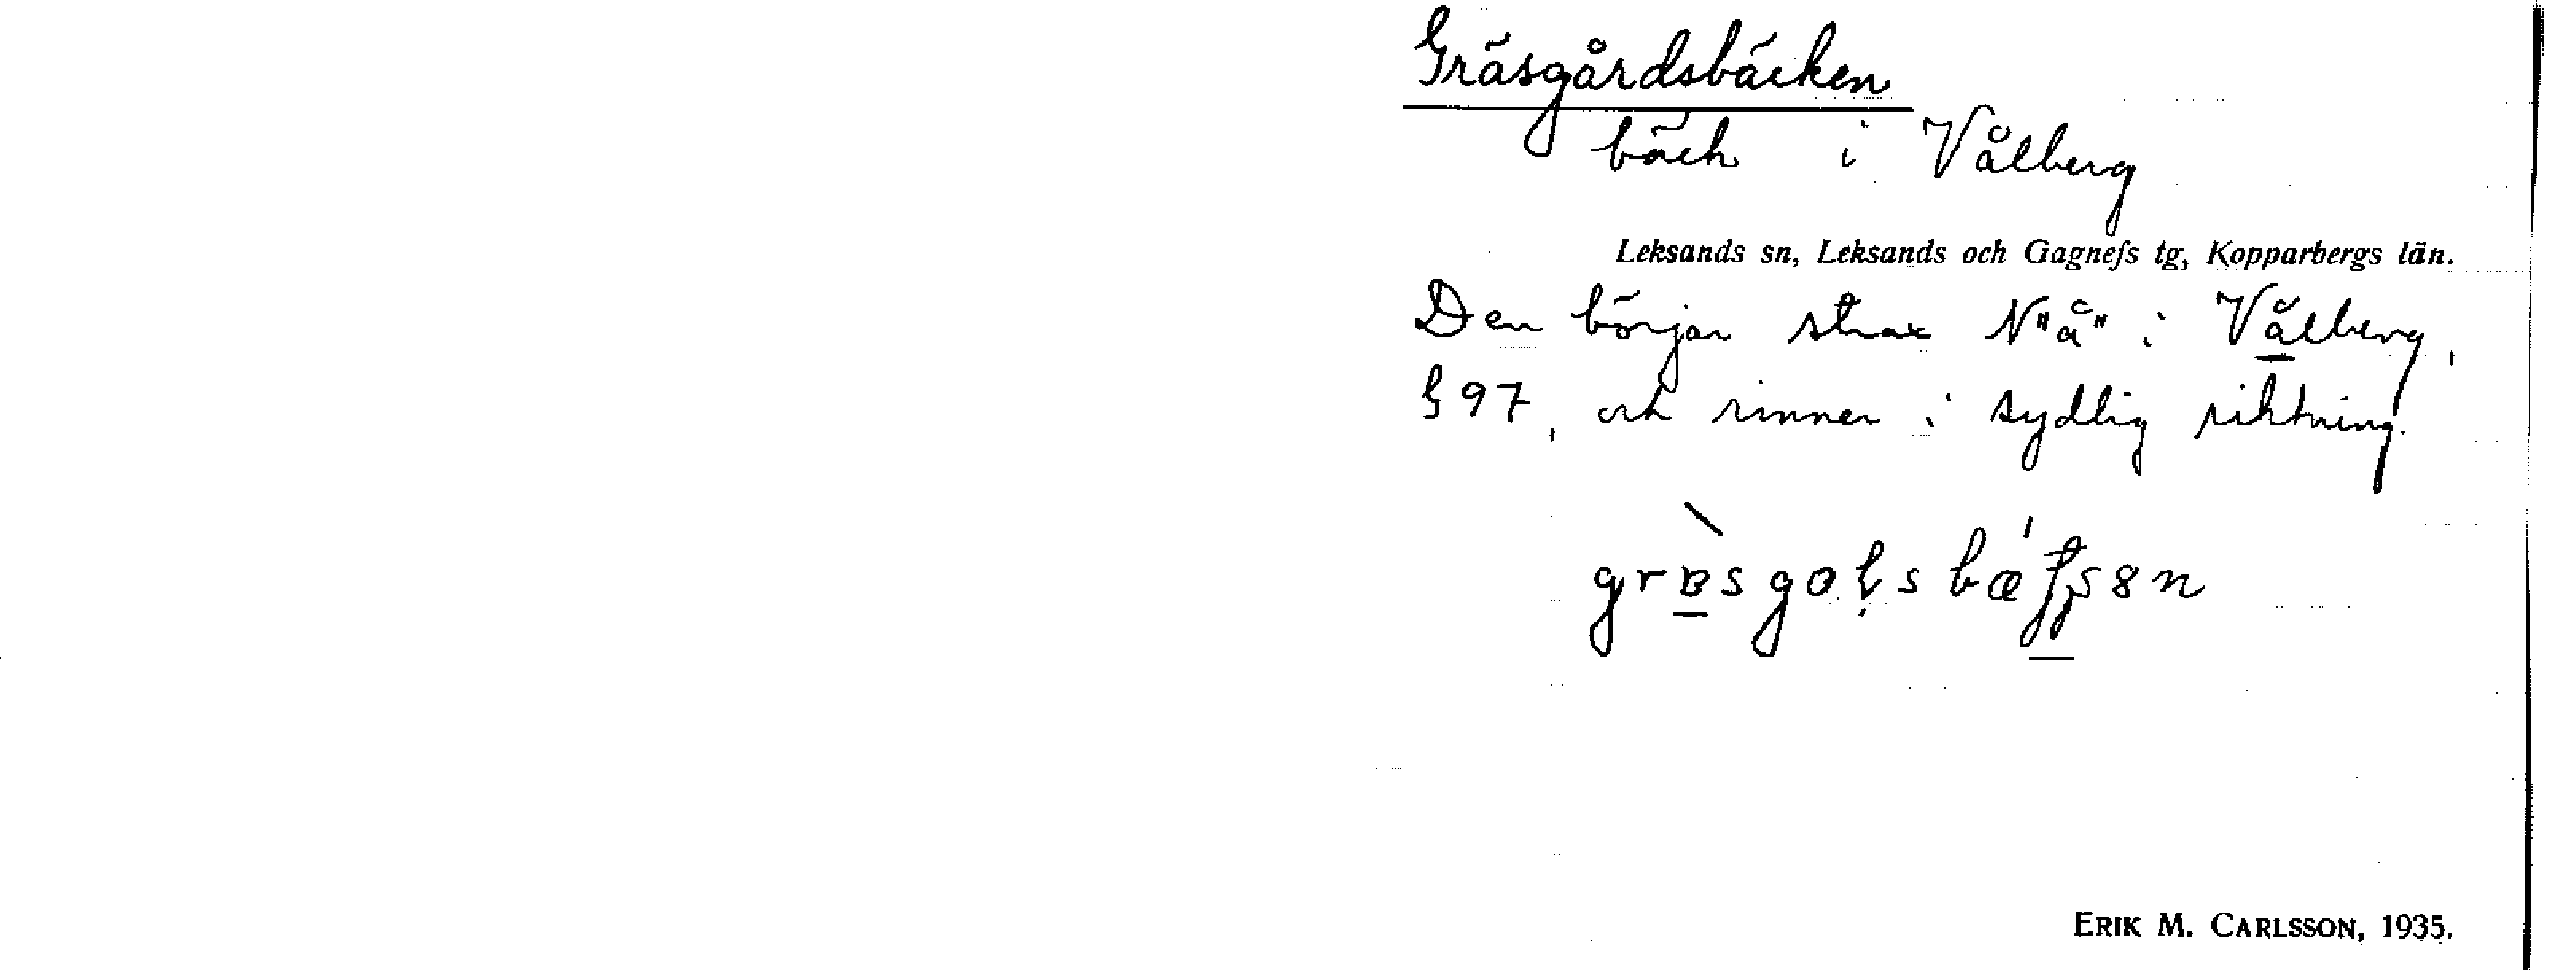 Gräsgårdsbäcken
bäck i Vålberg
Leksands sn, Leksands och Gagnefs tg, Kopparbergs län.
Den börjar strax N"å" i Vålberg,
§ 97, och rinner i sydlig riktning.
ERIK M. CARLSSON, 1935.